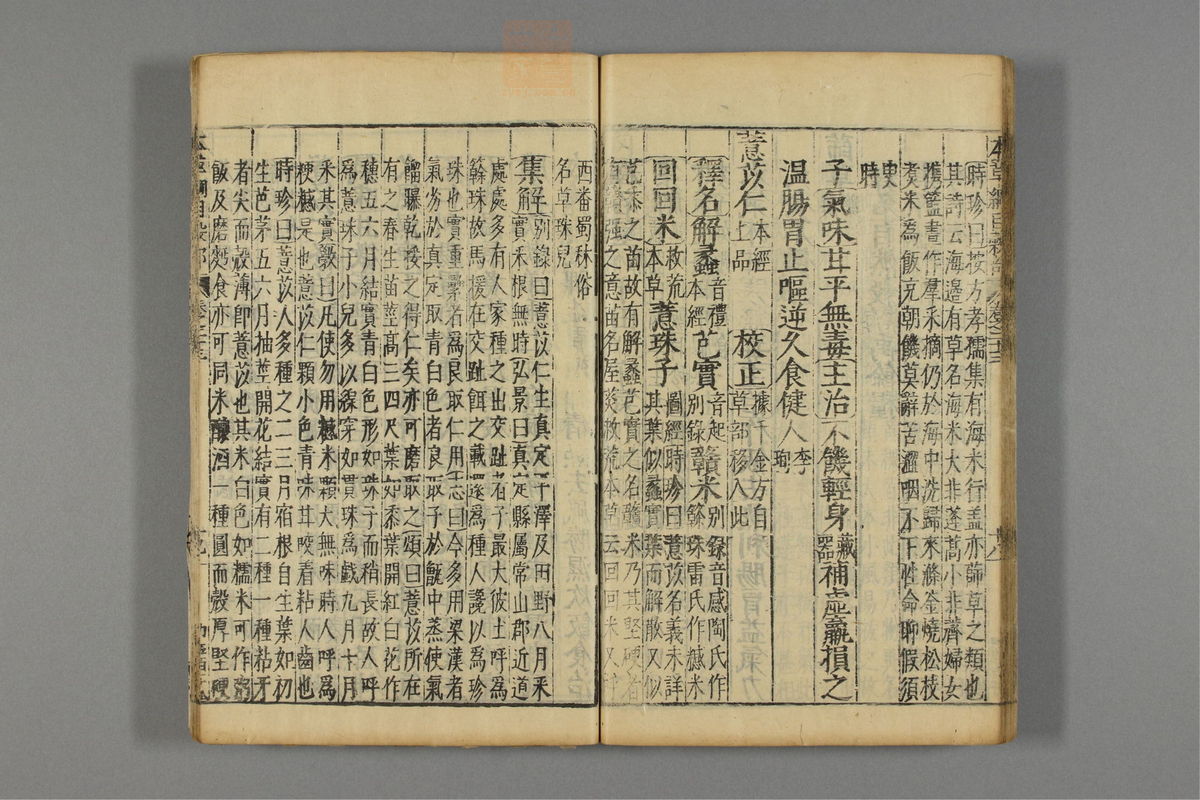 時珍曰按方孝孺集有海米行蓋亦蒒草之類也
其詩云海邊有草名海米大非蓬蒿小非薺婦女
携籃晝作羣采摘仍於海中洗歸來滌釜燒松枝
煑米爲飯充朝饑莫辭苦澀咽不下性命聊假須
臾時
子氣味甘平無毒主治不饑輕身藏器補虛羸損之
溫腸胃止嘔逆久食健人李珣
薏苡仁本經上品 校正據千金方自草部移入此
釋名解蠡音禮本經芑實音起別錄贛米別錄音感陶氏作𥽇珠雷氏作𥻧米
回回米救荒本草薏珠子圖經時珍曰薏苡名義未詳其葉似蠡實葉而解散又似
芑黍之苗故有解蠡芑實之名贛米乃其堅硬者
有贛强之意苗名屋菼救荒本草云回回米又呼
西番蜀秫俗
名草珠兒
集解別錄曰薏苡仁生眞定平澤及田野八月采實采根無時弘景曰眞定縣屬常山郡近道
處處多有人家種之出交趾者子最大彼土呼爲
簳珠故馬援在交趾餌之載還爲種人讒以爲珍
珠也實重累者爲良取仁用志曰今多用梁漢者
氣劣於眞定取青白色者良取子於甑中蒸使氣
餾曝乾挼之得仁矣亦可磨取之頌曰薏苡所在
有之春生苗莖高三四尺葉如黍葉開紅白花作
穗五六月結實青白色形如珠子而稍長故人呼
爲薏珠子小兒多以線穿如貫珠爲戲九月十月
采其實斆曰凡使勿用𥻧米顆大無味時人呼爲
粳𥻧是也薏苡仁顆小色青味甘咬着粘人齒也
時珍曰薏苡人多種之二三月宿根自生葉如初
生芭茅五六月抽莖開花結實有二種一種粘牙
者尖而殻薄即薏苡也其米白色如糯米可作粥
飯及磨麪食亦可同米釀酒一種圓而殻厚堅硬